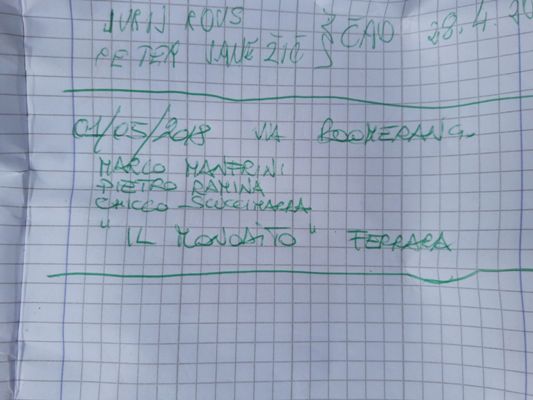 JURIJ ROUS
PETER JANEŽIČ } ČAO 28.4.20
01/05/2018 VIA BOOMERANG
MARCO MANFRINI
PIETRO RAMINA
CHICCO
"IL MONDAITO" FERRARA